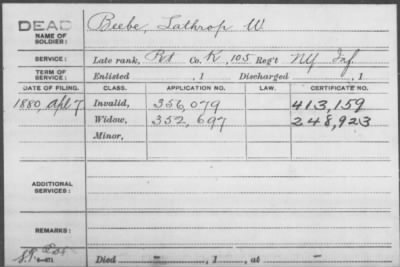 DEAD Beebe, Lathrop W
NAME OF SOLDIER:
SERVICE: Late rank, Pvt Co. K, 105 Reg't NY Inf.
TERM OF SERVICE: Enlisted , 1 Discharged , 1
DATE OF FILING. CLASS. APPLICATION NO. LAW. CERTIFICATE NO.
1880, Apl 7 Invalid, 356,079 413,159
Widow, 352,697 248,923
Minor,
ADDITIONAL SERVICES:
REMARKS:
Died - , 1 , at -